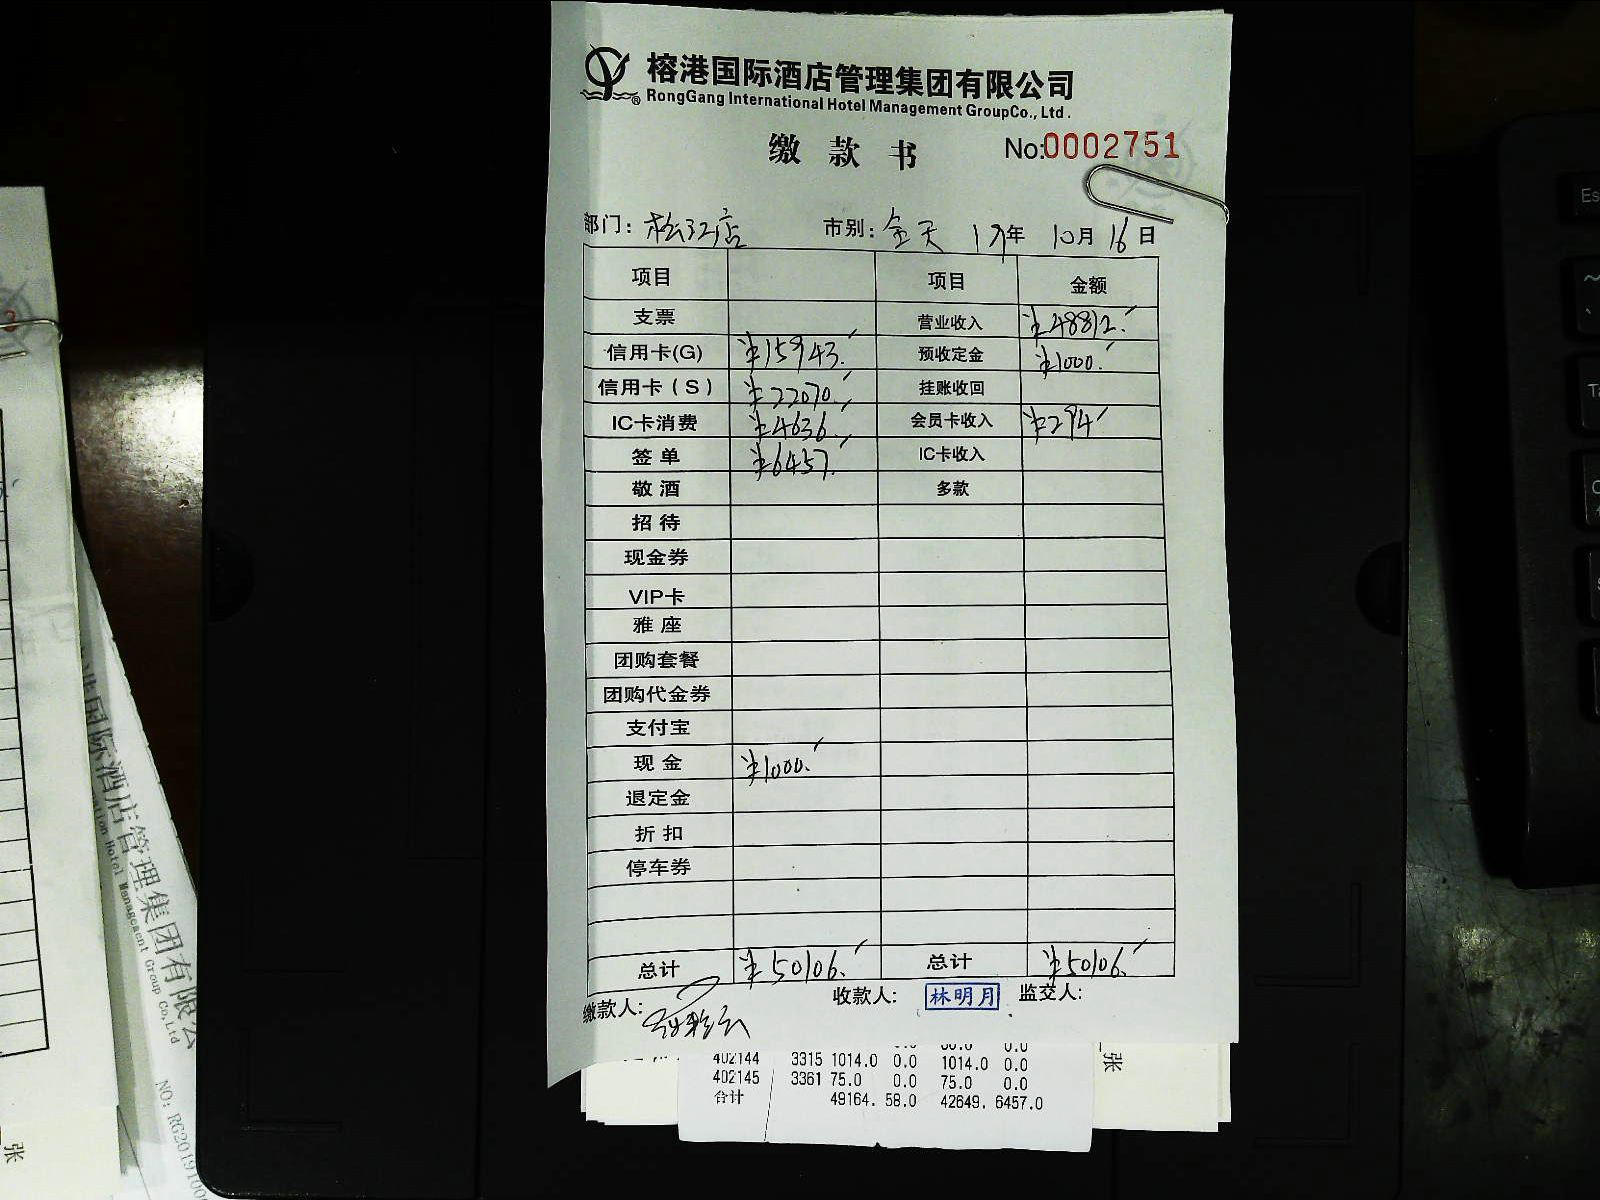 榕港国际酒店管理集团有限公司
RongGang International Hotel Management GroupCo., Ltd.
缴 款 书 No:0002751
部门: 松江店 市别: 全天 19年 10月 16日
项目 项目 金额
支票 营业收入 ¥48812.
信用卡(G) ¥15943. 预收定金 ¥1000.
信用卡(S) ¥22070. 挂账收回
IC卡消费 ¥4636. 会员卡收入 ¥294
签 单 ¥6457. IC卡收入
敬 酒 多款
招 待
现金券
VIP卡
雅 座
团购套餐
团购代金券
支付宝
现 金 ¥1000.
退定金
折 扣
停车券
总计 ¥50106. 总计 ¥50106.
缴款人: 收款人: 林明月 监交人:
402144 3315 1014.0 0.0 1014.0 0.0
402145 3361 75.0 0.0 75.0 0.0
合计 49164. 58.0 42649. 6457.0
张
国际酒店管理集团有限公
Hotel Management Group Co,Ltd
张
Es